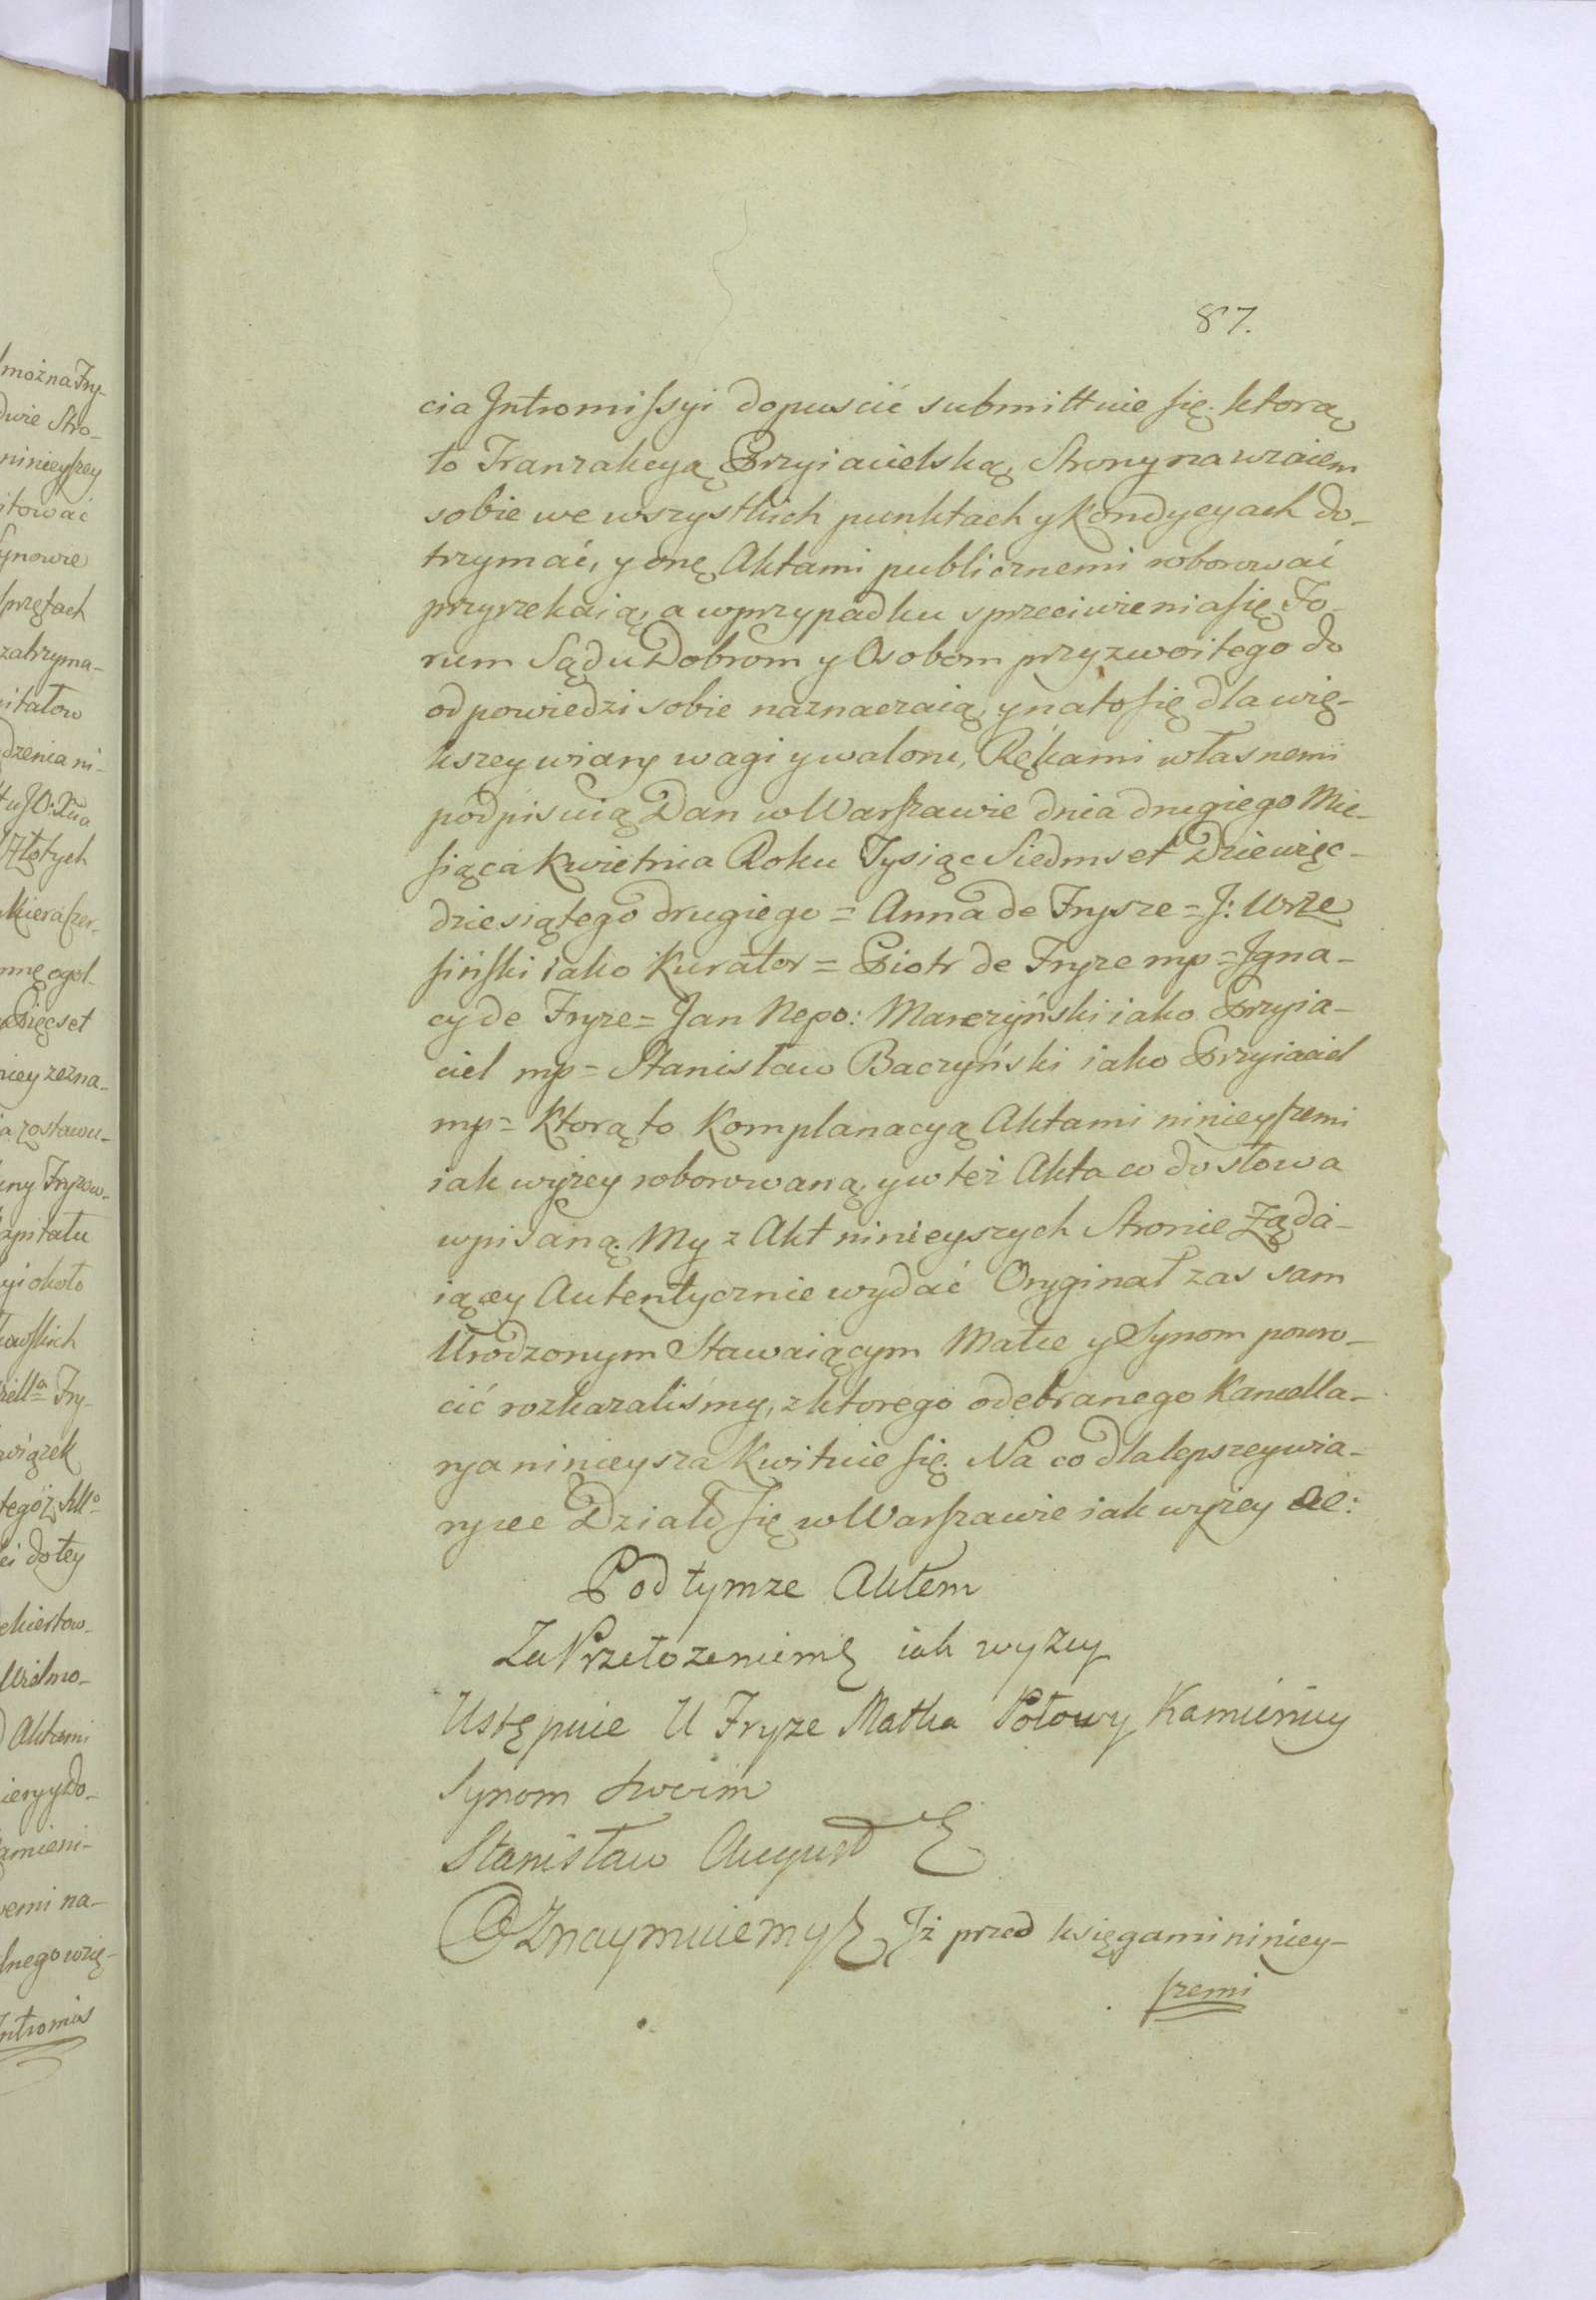 87.
cia Intromissyi dopuscić submittuie się. ktorą
to Tranzakcyą Przyiacielską, Strony nawzaiem
sobie we wszystkich punktach y Kondycyach do-
trzymać, y onę Aktami publicznemi roborować
przyrzekaią, a w przypadku sprzeciwienia się Fo-
rum Sądu Dobrom y Osobom przyzwoitego do
odpowiedzi sobie naznaczaią, y na to się dla wię-
kszey wiary wagi y waloru, Rękami własnemi
podpisuią Dan w Warszawie dnia drugiego Mie-
siąca Kwietnia Roku Tysiąc Siedmset Dziewięc-
dziesiątego drugiego = Anna de Frysze = J: Wrze
siński iako Kurator = Piotr de Fryze mp = Igna-
cy de Fryze = Jan Nepo: Marczyński iako Przyia-
ciel mp = Stanisław Baczyński iako Przyiaciel
mp = Ktorą to Komplanacyą Aktami ninieyszemi
iak wyżey roborowaną, y w też Akta co do słowa
wpisaną. My z Akt ninieyszych Stronie Żąda-
iącey Autentycznie wydać Oryginał zas sam
Urodzonym Stawaiącym Matce y Synom powro-
cić rozkazaliśmy, z ktorego odebranego Kancella-
rya ninieysza Kwituie się. Na co dla lepszey wia-
ry ece Działo się w Warszawie iak wyżey ece:
Pod tymze Aktem
Za Przełozeniem iak wyzey
Ustępuie U Fryze Matka Połowy Kamienicy
Synom swoim
Stanisław August
Oznaymuiemy Iż przed księgami niniey-
szemi
można Fry-
dwie Stro-
ninieyszey
itować
synowie
sprzętach
zatrzyma-
pitałow
dzenia ni-
Złotych
nnę ogol-
Pięcset
niey zezna-
ia zostawu-
iny Fryzow-
apitału
yi około
związek
tegoż
ei do tey
Aktami
iery y do-
amieni-
wemi na-
lnego wzię-
Intromis